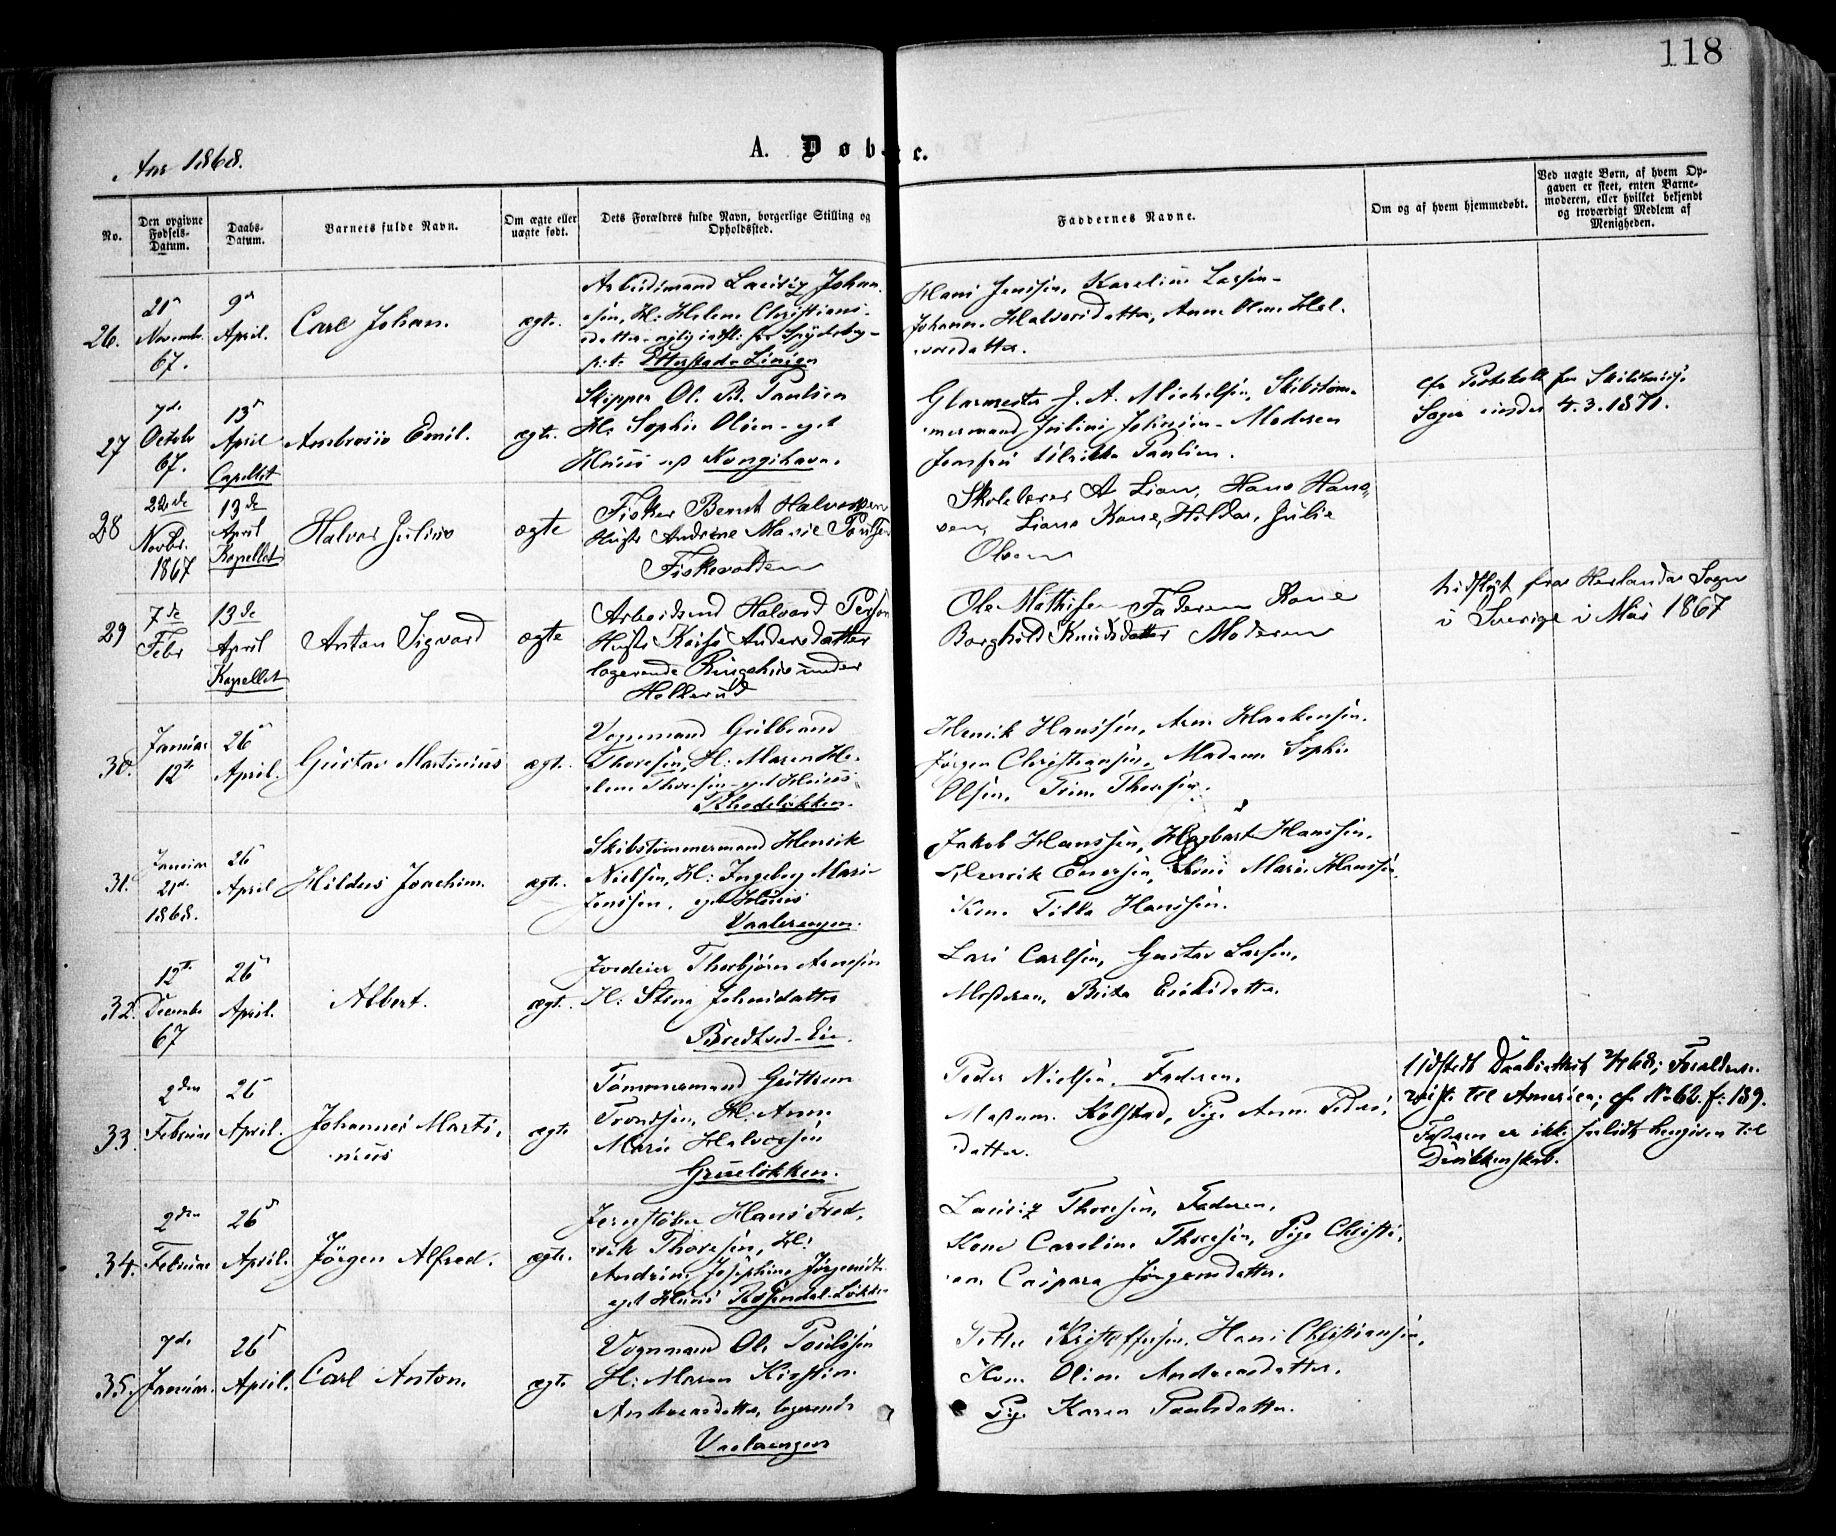 118
Aar 1868.
A. Døbte.
No.
Den opgivne Fødsels-Datum.
Daabs-Datum.
Barnets fulde Navn.
Om ægte eller uægte født.
Dets Forældres fulde Navn, borgerlige Stilling og Opholdssted.
Faddernes Navne.
Om og af hvem hjemmedøbt.
Ved uægte Børn, af hvem Opgaven er skeet, enten Barnemoderen, eller hvilket bekjendt og troværdigt Medlem af Menigheden.
26.
21
Novembr.
67.
9de
April.
Carl Johan.
ægte.
Arbeidsmand Lauritz Johan-
sen, H. Helene Christians-
datter
Etterstad-Linien
Hans Jensen, Kareline Larsen
Johanne Halvorsdatter, Anne Oline Hal-
vorsdatter.
27
7de
Octobr
67.
13
April
Capellet
Ambrosius Emil.
ægte.
Skipper Ole B. Paulsen
H. Sophie Olsen - eget
Huus ved Kongshavn.
Glarmester J. A. Michelsen, Skibstøm-
mermand Julius Johnsen - Moderen
Jomfru Ulrikke Paulsen.
cfr Protokoll for
Sager under 4.3.1871.
28
22de
Novbr.
1867
13de
April
Kapellet
Halvor Julius
ægte
Fisker Bernt Halvorsen
Hust. Andrine Marie Poulsen
Fiskevolden
Skolelærer A Lian, Hans Han-
sen, Lians Kone, Hilda, Julie
Olsen
29
7de
Febr
13de
April
Kapellet
Anton Sigvard
ægte
Arbeidsmd Halvard Person
Hust Kaisa Andersdatter
logerende Ringshuus under
Hollerud
Ole Mathisen Faderen Kone
Borghild Knudsdatter Moderen
Indflyt fra Herlanda Sogn
i Sverige i Mai 1867
30.
Januar
12te
26
April.
Gustav Martinius
ægte.
Vognmand Gulbrand
Thoresen, H: Maren He-
lene Thoresen - eget Huus
Rhodeløkken.
Henrik Hanssen, Arne Haakensen.
Jørgen Christiansen, Madam Sophie
Olsen, Trine Thoresen.
31.
Januar
21de
1868.
26
April
Hildus Joachim.
ægte.
Skibstømmermand Henrik
Nielsen, H: Ingeborg Marie
Jenssen, eget Huus
Vaalerengen.
Jakob Hanssen, Hagbart Hanssen.
Henrik Enersen, Marie Hanssen,
Kone Tilla Hanssen.
32.
12te
Decembr
67
26
April.
Albert.
ægte.
Jordeier Thorbjørn Arnesen
H: Stine Johnsdatter
Bredtved-Eie.
Lars Carlsen, Gustav Larsen,
Moderen, Brita Eriksdatter.
33.
2den
Februar
26
April.
Johannes Marti-
nius
ægte
Tømmermand Guttorm
Trondsen, H. Anne
Marie Halvorsen
Grueløkken.
Peder Nielsen, Faderen.
Madam Kolstad, Pige Anne Peders-
datter.
Udstedt Daabsattest 68; Forældrene
reiste til America; cf. No 62. f: 189.
Faderen er ikke hengiven til
Drukkenskab.
34.
2den
Februar
26
April.
Jørgen Alfred.
ægte.
Jernstøber Hans Fred-
rik Thoresen, H:
Andrine Josephine Jørgensdt.
eget Huus Rosendal-Løkke
Lauritz Thoresen, Faderen,
Kone Caroline Thoresen, Pige Christi-
ne Caspara Jørgensdatter.
35.
7de
Januar.
26
April.
Carl Anton.
ægte
Vognmand Ole Poulsen
H: Maren Kirstine
Andreasdatter, logerende
Vaalerengen
Petter Kristoffersen, Hans Christiansen,
Kone Oline Andreasdatter.
Pige Karen Paulsdatter.